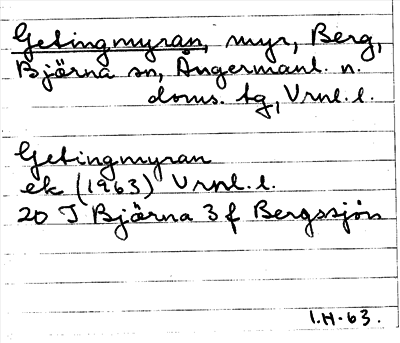 Getingmyran, myr, Berg,
Björna sn, Ångermanl. n.
doms. tg, Vrnl. l.
Getingmyran
ek (1963) Vrnl. l.
20 J Björna 3 f Bergssjön
I.H-63.